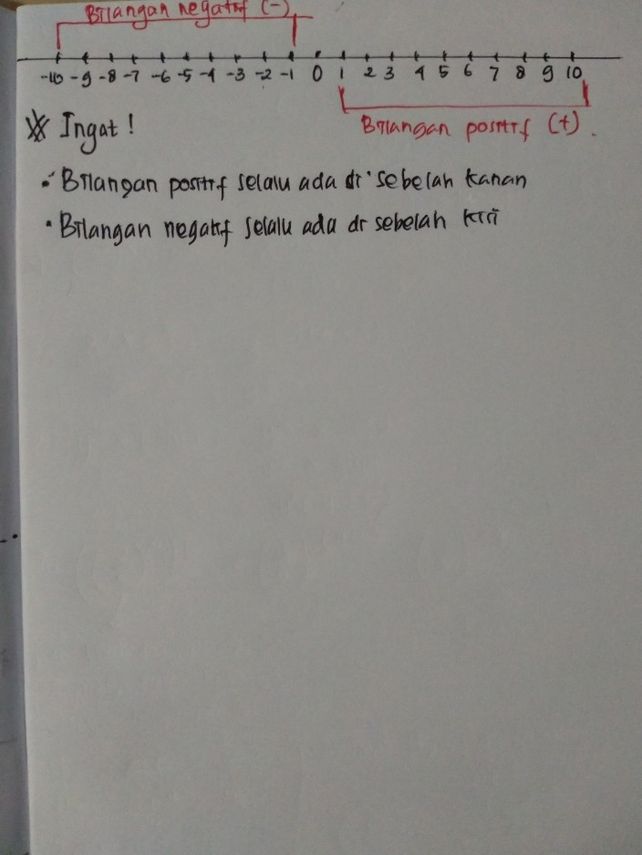 Bilangan negatif (-)
-10 -9 -8 -7 -6 -5 -4 -3 -2 -1 0 1 2 3 4 5 6 7 8 9 10
Bilangan positif (+).
Ingat!
• Bilangan positif selalu ada di sebelah kanan
• Bilangan negatif selalu ada di sebelah kiri